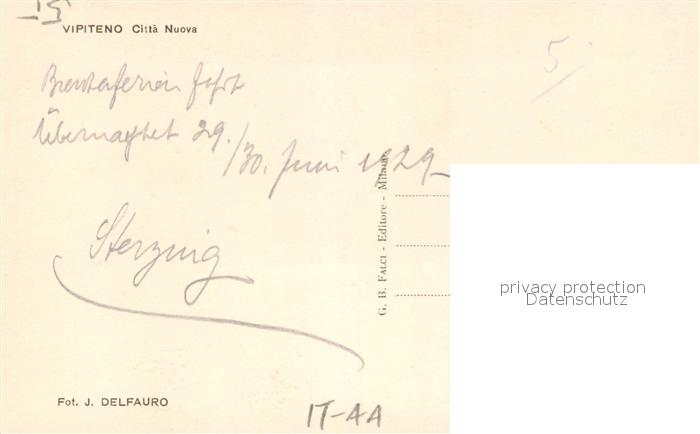 VIPITENO Città Nuova
5/
Brentaferien fahrt
Übernachtet 29./30. Juni 1929
Sterzing
G. B. FALCI - Editore - Milano
privacy protection
Datenschutz
Fot. J. DELFAURO
IT-AA